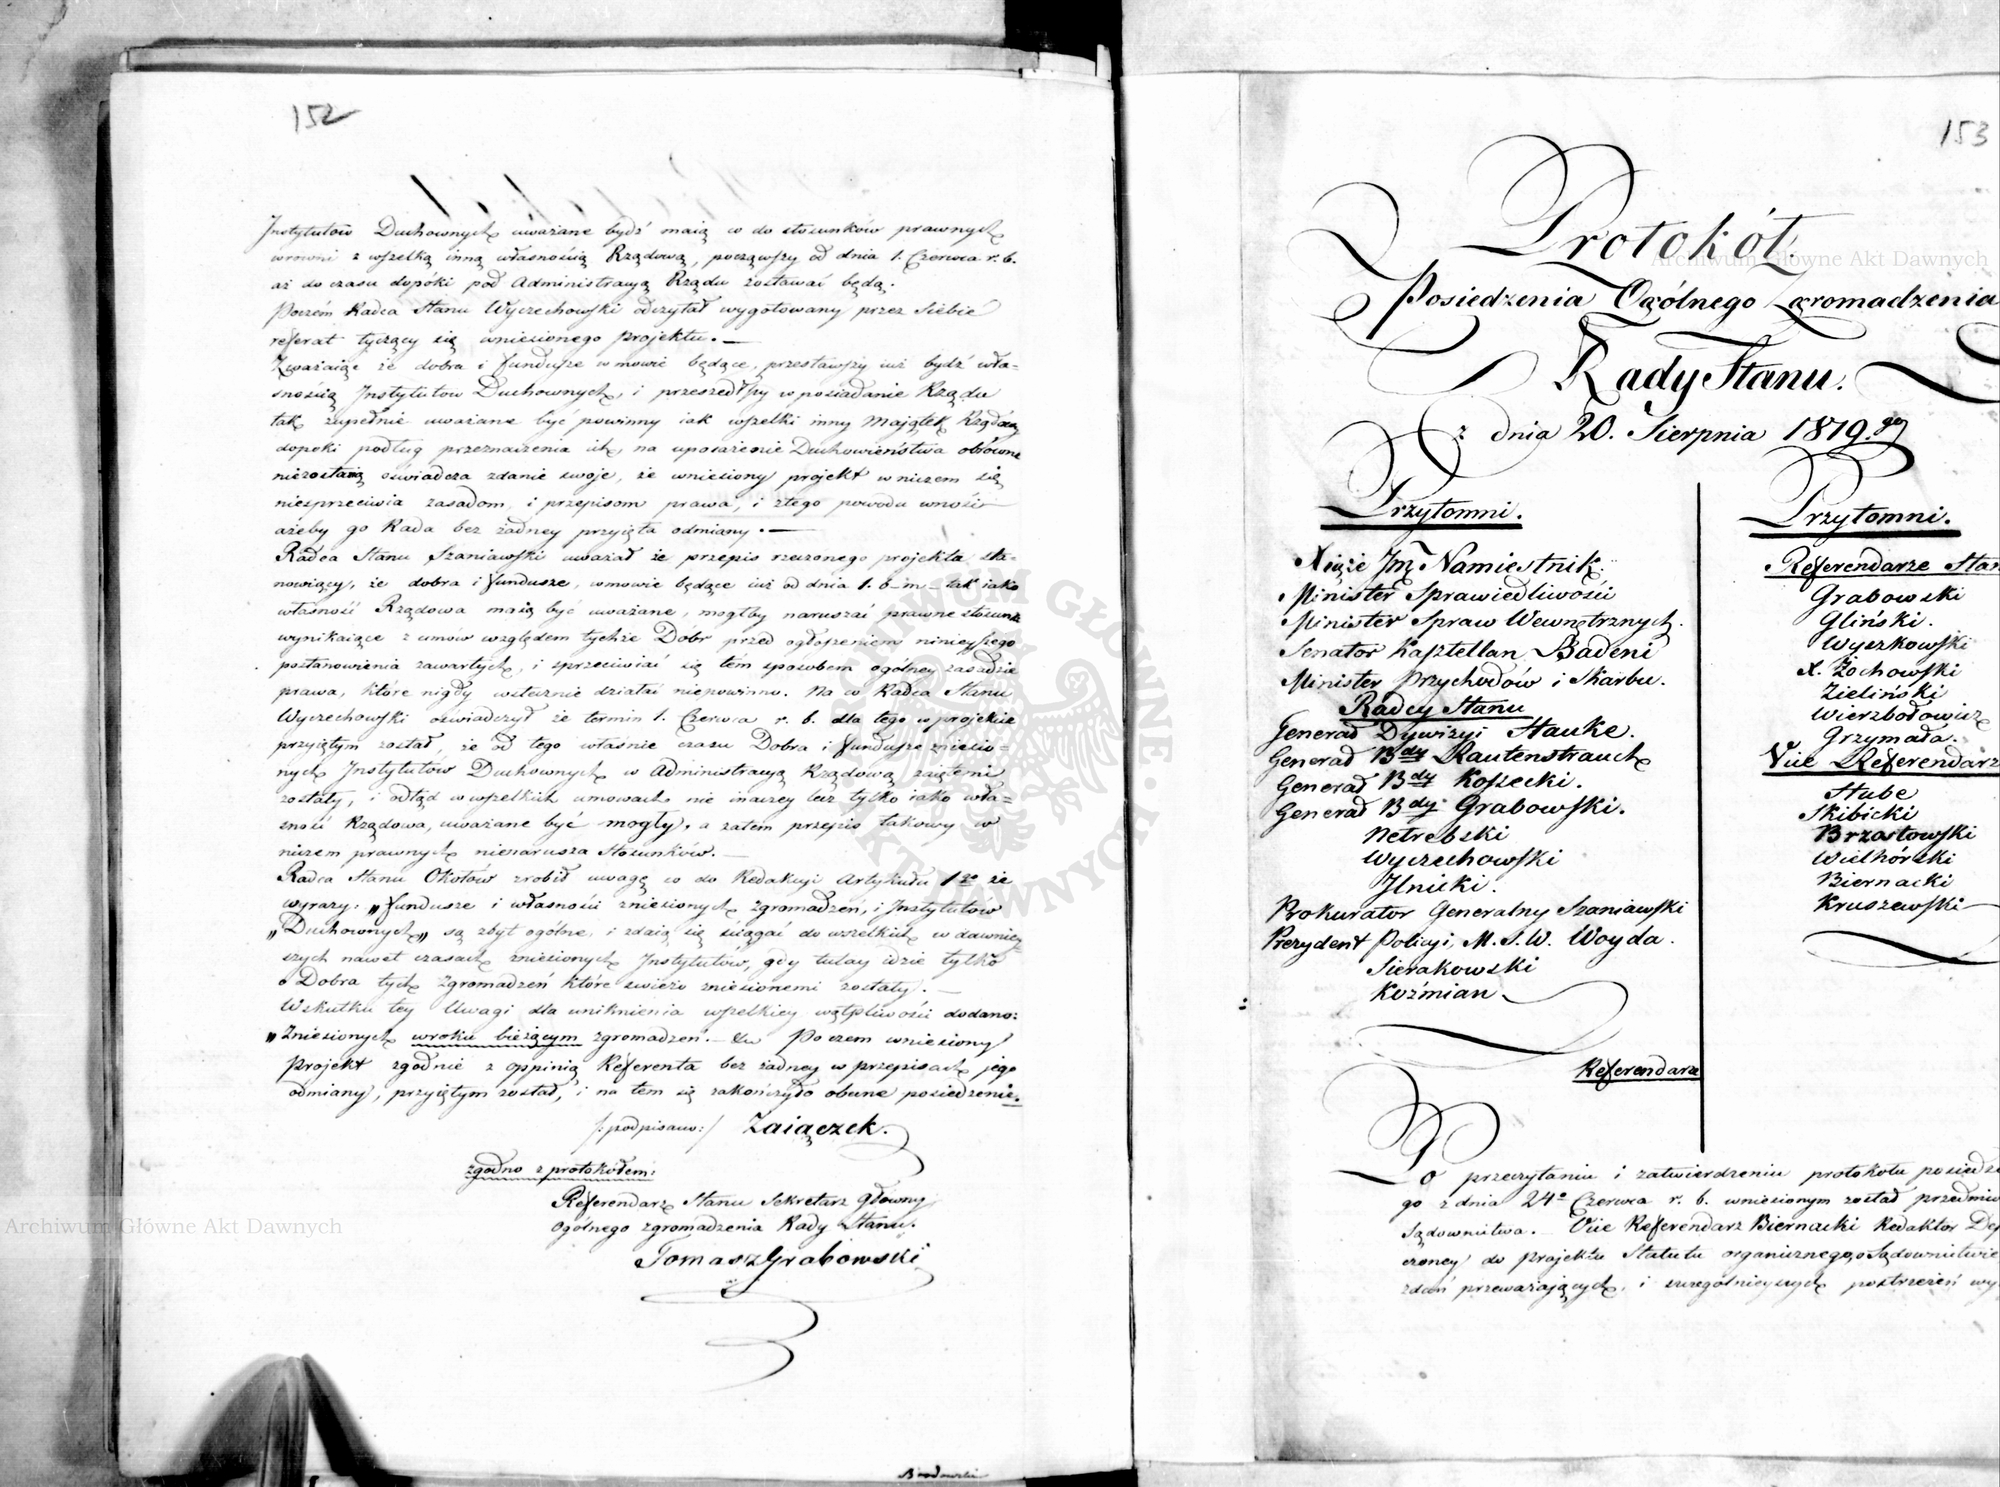 152
Instytutów Duchownych uważane bydź maią co do stosunków prawnych
wrowni z wszelką inną własnością Rządową, począwszy od dnia 1. Czerwca r. b.
aż do czasu dopóki pod Administracyą Rządu zostawać będą.
Poczém Radca Stanu Wyczechowski odczytał wygotowany przez Siebie
referat tyczący się wniesionego projektu. —
Zważaiąc że dobra i fundusze w mowie będące, przestawszy iuż bydź wła-
snością Instytutow Duchownych, i przeszedłszy w posiadanie Rządu
tak zupełnie uważane być powinny iak wszelki inny Maiątek Rządowy
dopoki podług przeznaczenia ich, na uposażenie Duchowieństwa obrócone
niezostaną oświadcza zdanie swoje, że wniesiony projekt w niczem się
niesprzeciwia zasadom i przepisom prawa, i ztego powodu wnosi
ażeby go Rada bez żadney przyięła odmiany. —
Radca Stanu Szaniawski uważał że przepis rzeczonego projektu sta-
nowiący, że dobra i fundusze, wmowie będące iuż od dnia 1. b. m. tak iako
własność Rządowa maią być uważane, mogłby naruszać prawne stosunki
wynikaiące z umów względem tychże Dóbr przed ogłoszeniem ninieyszego
postanowienia zawartych, i sprzeciwiać się tem sposobem ogólney zasadzie
prawa, które nigdy wstecznie działać niepowinno. Na co Radca Stanu
Wyczechowski oświadczył że termin 1. Czerwca r. b. dla tego w projekcie
przyiętym został, że od tego właśnie czasu Dobra i fundusze zniesio-
nych Instytutów Duchownych w Administracyą Rządową zaiętemi
zostały, i odtąd w wszelkich umowach nie inaczey lecz tylko iako wła-
sność Rządowa, uważane być mogły, a zatem przepis takowy w
niczem prawnych nienarusza Stosunków. —
Radca Stanu Okołow zrobił uwagę co do Redakcyi Artykułu 1go że
wyrazy: „fundusze i własności zniesionych zgromadzeń, i Instytutów
„Duchownych„ są zbyt ogólne, i zdaią się ściągać do wszelkich w dawniey-
szych nawet czasach zniesionych Instytutów, gdy tutay idzie tylko
o Dobra tych zgromadzeń które świeżo zniesionemi zostały. —
Wskutku tey Uwagi dla uniknienia wszelkiey wątpliwości dodano:
„Zniesionych wroku bieżącym zgromadzeń. — Poczem wniesiony
Projekt zgodnie z oppinią Referenta bez żadney w przepisach jego
odmiany, przyiętym został, i na tem się zakończyło obecne posiedzenie.
/:podpisano:/ Zaiączek.
zgodno z protokółem:
Referendarz Stanu Sekretarz Główny
Ogólnego zgromadzenia Rady Stanu.
Tomasz Grabowski
Brodowski
153
Protokół
Posiedzenia Ogólnego Zgromadzenia
Rady Stanu.
z dnia 20. Sierpnia 1819.go
Przytomni.
Xiąże Jmć Namiestnik.
Minister Sprawiedliwości
Minister Spraw Wewnętrznych.
Senator Kasztellan Badeni
Minister Przychodów i Skarbu.
Radcy Stanu
Generał Dywizyi Hauke.
Generał Bdy Rautenstrauch
Generał Bdy Kossecki.
Generał Bdy Grabowski.
Netrebski
Wyczechowski
Ilnicki.
Prokurator Generalny Szaniawski
Prezydent Policyi, M. S. W. Woyda.
Sierakowski
Koźmian.
Referendarz
Przytomni.
Referendarze Stan
Grabowski
Gliński.
Wyszkowski
X. Żochowski
Zieliński
Wierzbołowicz
Grzymała.
Vice Referendarz
Hube
Skibicki
Brzostowski
Wielhórski
Biernacki
Kruszewski
Po przeczytaniu i zatwierdzeniu protokołu posiedze
go zdnia 24o Czerwca r. b. wniesionym został przedmio
Sądownictwa. Vice Referendarz Biernacki Redaktor Dep
czoney do projektu Statutu organicznego, o Sądownictwie
zdań przeważających, i szczególnieyszych postrzeżeń wy
Archiwum Główne Akt Dawnych
Archiwum Główne Akt Dawnych